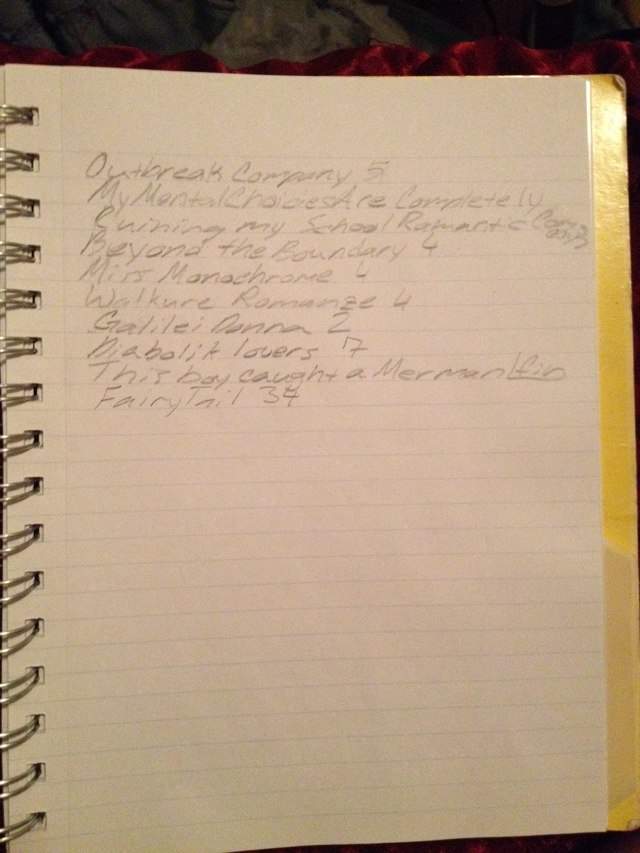 Outbreak Company 5
My Mental Choices Are Completely
Ruining my School Romantic Com
edy 3
Beyond the Boundary 4
Miss Monochrome 4
Walkure Romanze 4
Galilei Donna 2
Diabolik lovers 7
This boy caught a Merman 1 fin
Fairy Tail 34